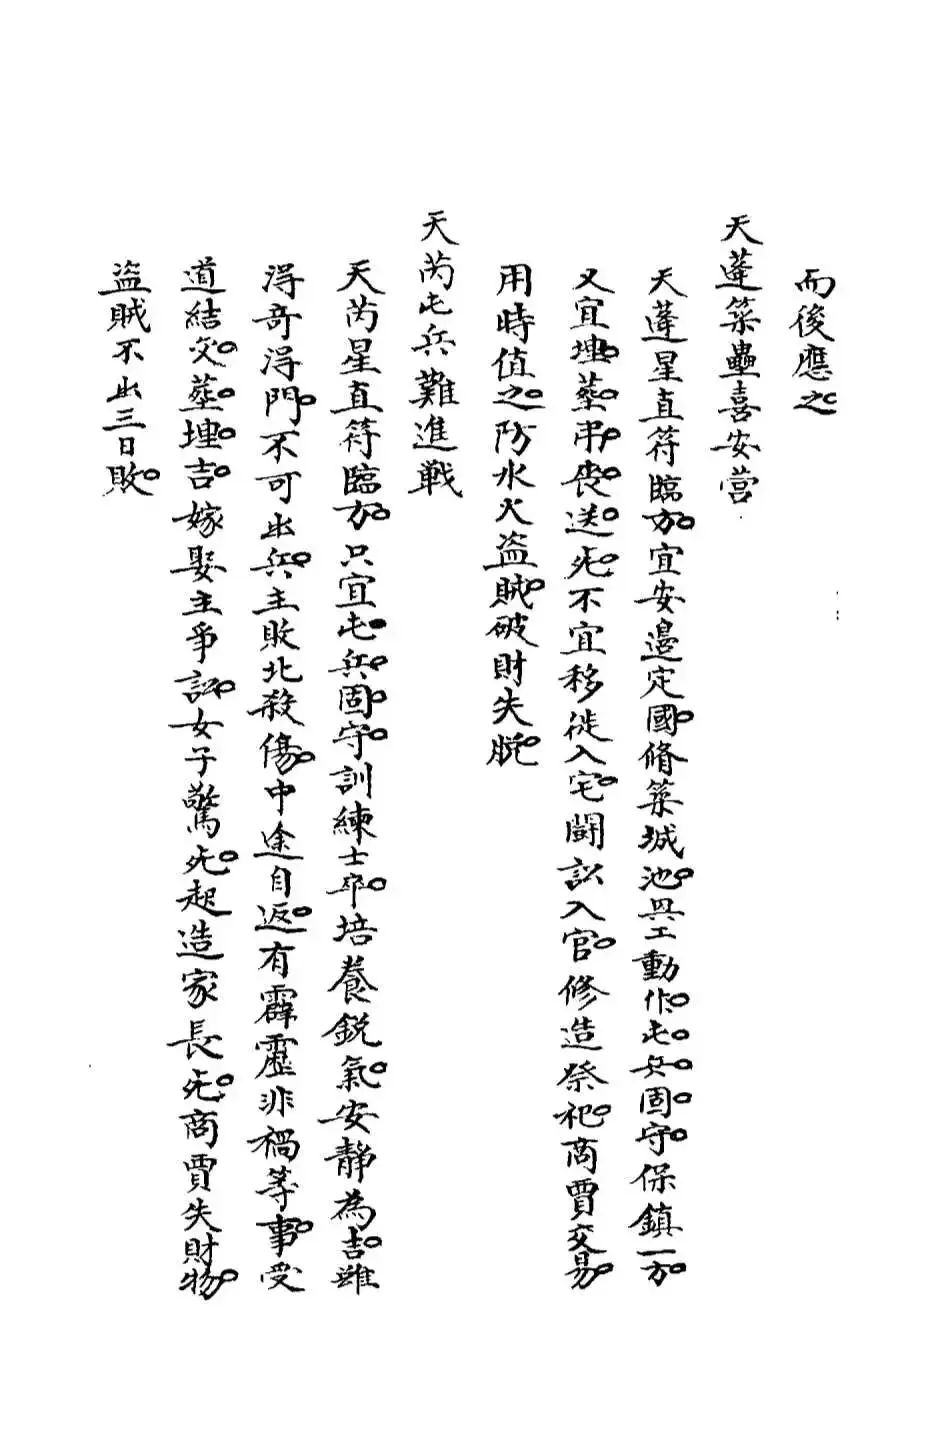 而後應之。
天蓬築壘喜安营
天蓬星直符臨方。宜安邊定國。脩築城池。興工動作。屯。兵。固。守。保鎮一方。
又宜埋。葬。弔。喪。送。死。不宜移徙入宅。鬪訟入官。修造祭祀。商賈交易。
用時值之。防水火盜賊。破財失脫。
天芮屯兵難進戰
天芮星直符臨方。只宜屯。兵。固。守。訓練士卒。培養銳氣。安靜為吉。雖
得奇得門。不可出兵。主敗北殺傷。中途自返。有霹靂非禍等事。受
道結交。葬。埋。吉。嫁娶主爭訟。女子驚死。起造家長死。商賈失財物。
盜賊不出三日敗。